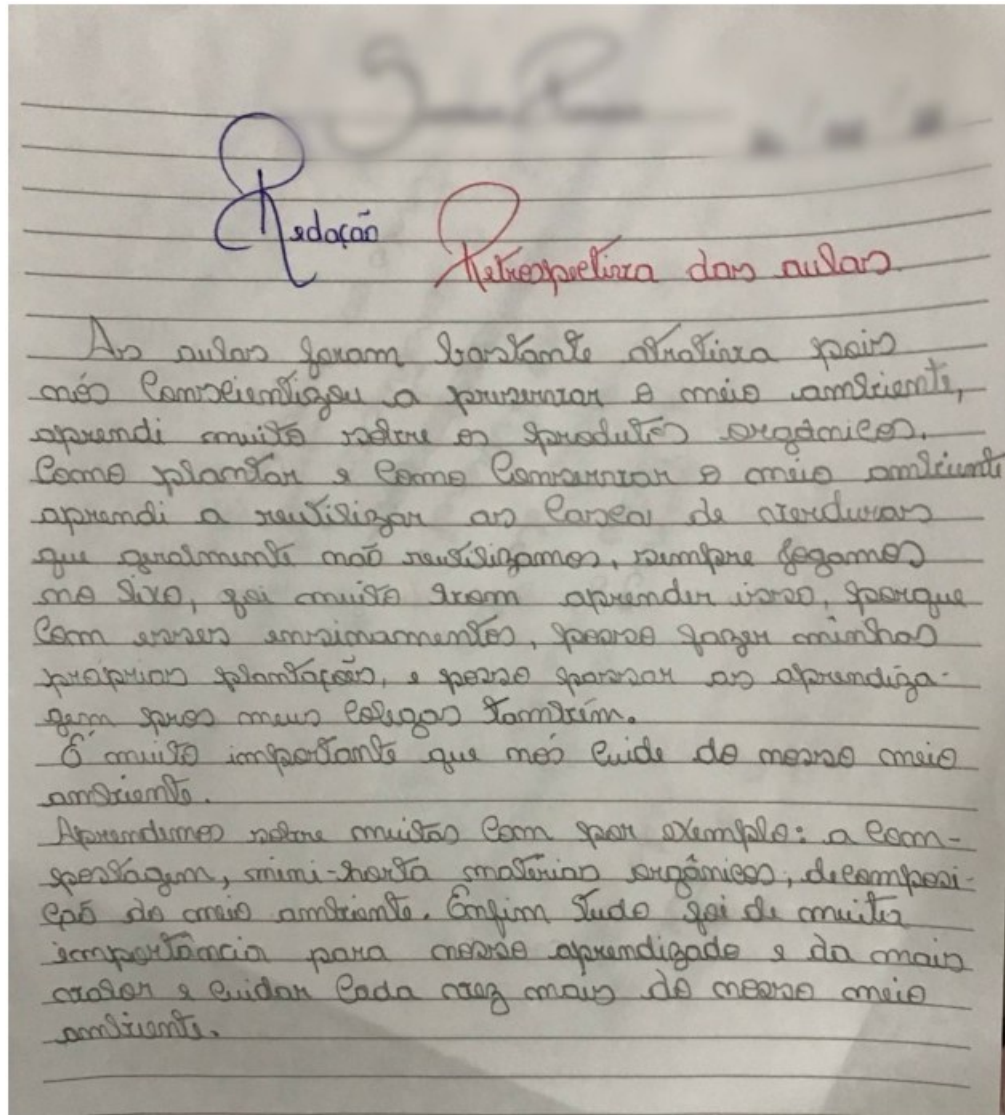 Redação Retrospetiva das aulas
As aulas foram bastante atrativa pois
nós Conscientizou a preservar o meio ambiente,
aprendi muito sobre os produtos orgânicos.
Como plantar e Como Conservar o meio ambiente
aprendi a reutilizar as Cascas de verduras
que geralmente não reutilizamos, sempre jogamos
no lixo, foi muito bom aprender isso, porque
Com esses ensinamentos, posso fazer minhas
próprias plantações, e posso passar as aprendiza-
gem pros meus Colegas também.
É muito importante que nós Cuide do nosso meio
ambiente.
Aprendemos sobre muitas Com por exemplo: a Com-
postagem, mini-horta matérias orgânicos, decomposi-
ção do meio ambiente. Enfim tudo foi de muita
importância para nosso aprendizado e da mais
valor e Cuidar Cada vez mais do nosso meio
ambiente.